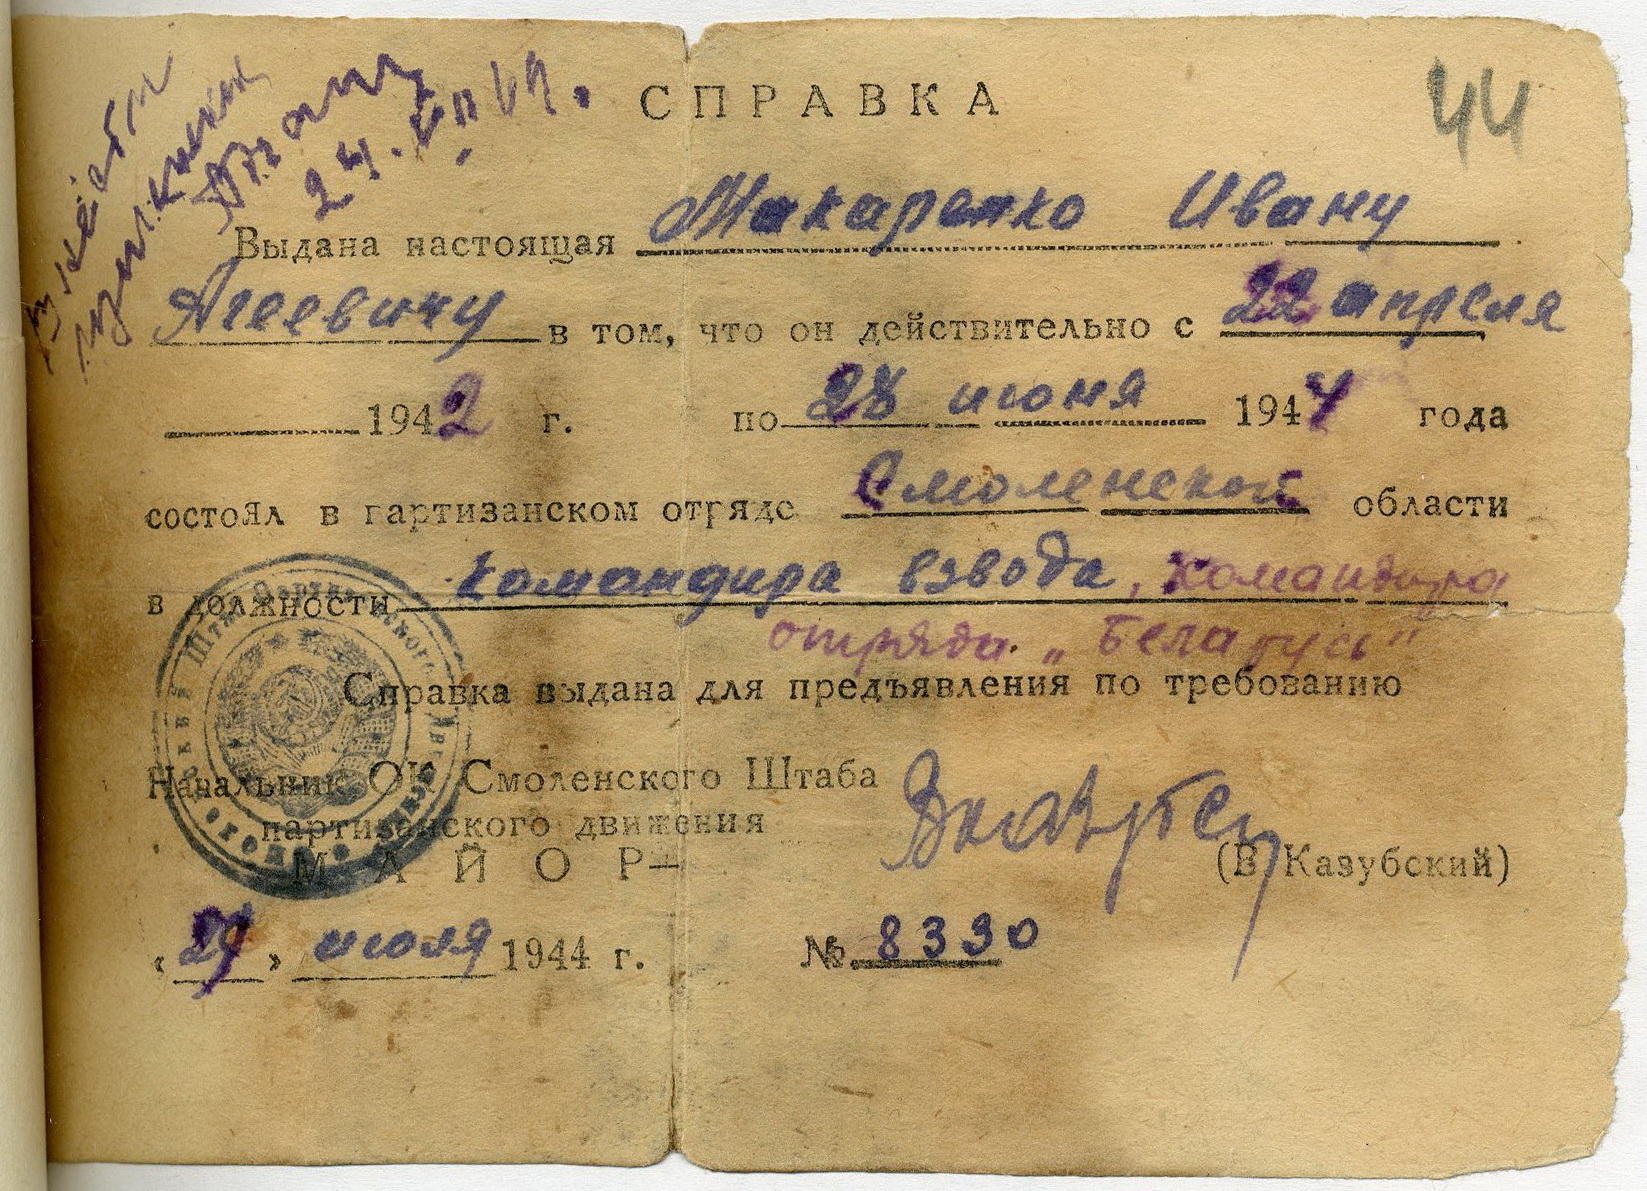 СПРАВКА
44
Выдана настоящая Макаренко Ивану
Агеевичу в том, что он действительно с 22 апреля
1942 г. по 28 июня 1944 года
состоял в партизанском отряде Смоленской области
в должности командира взвода, командира
отряда „Беларусь"
Справка выдана для предъявления по требованию
Начальник ОК Смоленского Штаба
партизанского движения
МАЙОР—
(В Казубский)
« 29 » июля 1944 г. № 8330